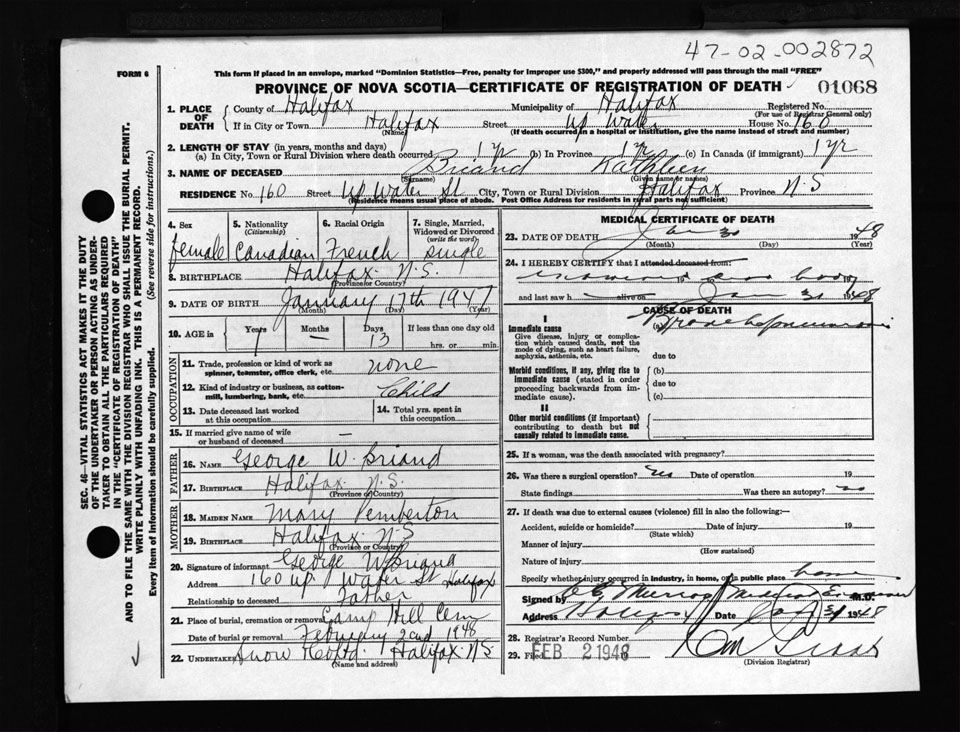 47-02-002872
FORM 6
This form if placed in an envelope, marked "Dominion Statistics—Free, penalty for improper use $300," and properly addressed will pass through the mail "FREE"
PROVINCE OF NOVA SCOTIA—CERTIFICATE OF REGISTRATION OF DEATH 01068
SEC. 46—VITAL STATISTICS ACT MAKES IT THE DUTY
OF THE UNDERTAKER OR PERSON ACTING AS UNDER-
TAKER TO OBTAIN ALL THE PARTICULARS REQUIRED
IN THE "CERTIFICATE OF REGISTRATION OF DEATH"
AND TO FILE THE SAME WITH THE DIVISION REGISTRAR WHO SHALL ISSUE THE BURIAL PERMIT.
WRITE PLAINLY WITH UNFADING INK. THIS IS A PERMANENT RECORD.
Every item of information should be carefully supplied. (See reverse side for instructions.)
1. PLACE OF DEATH
County of Halifax Municipality of Halifax Registered No.
(For use of Registrar General only)
If in City or Town Halifax Street Up Water House No. 160
(Name) (If death occurred in a hospital or institution, give the name instead of street and number)
2. LENGTH OF STAY (in years, months and days)
(a) In City, Town or Rural Division where death occurred 1 yr (b) In Province 1 yr (c) In Canada (if immigrant) 1 yr
3. NAME OF DECEASED Briand Kathleen
(Surname) (Given name or names)
RESIDENCE No. 160 Street Up Water St City, Town or Rural Division Halifax Province N.S
(Residence means usual place of abode. Post Office Address for residents in rural parts not sufficient)
4. Sex
female
5. Nationality
(Citizenship)
Canadian
6. Racial Origin
French
7. Single, Married,
Widowed or Divorced
(write the word)
single
8. BIRTHPLACE Halifax N.S.
(Province or Country)
9. DATE OF BIRTH January 17th 1947
(Month) (Day) (Year)
10. AGE in
Years Months Days If less than one day old
1 — 13 hrs. or min.
OCCUPATION
11. Trade, profession or kind of work as
spinner, teamster, office clerk, etc. none
12. Kind of industry or business, as cotton-
mill, lumbering, bank, etc. Child
13. Date deceased last worked
at this occupation
14. Total yrs. spent in
this occupation
15. If married give name of wife
or husband of deceased —
FATHER
16. NAME George W. Briand
17. BIRTHPLACE Halifax N.S.
(Province or Country)
MOTHER
18. MAIDEN NAME Mary Pemberton
19. BIRTHPLACE Halifax N.S
(Province or Country)
20. Signature of informant George W Briand
Address 160 up Water St Halifax
Relationship to deceased Father
21. Place of burial, cremation or removal Camp Hill Cem
Date of burial or removal February 2nd 1948
22. Undertaker Snow & Co Ltd. Halifax N.S
(Name and address)
MEDICAL CERTIFICATE OF DEATH
23. DATE OF DEATH Jan 30 1948
(Month) (Day) (Year)
24. I HEREBY CERTIFY that I attended deceased from:
body
and last saw h alive on Jan 31 1948
CAUSE OF DEATH
I
Immediate cause
Give disease, injury or complica-
tion which caused death, not the
mode of dying, such as heart failure,
asphyxia, asthenia, etc.
(a) Bronchopneumonia
due to
Morbid conditions, if any, giving rise to
immediate cause (stated in order
proceeding backwards from im-
mediate cause).
(b)
due to
(c)
II
Other morbid conditions (if important)
contributing to death but not
causally related to immediate cause.
25. If a woman, was the death associated with pregnancy?
26. Was there a surgical operation? no Date of operation 19
State findings Was there an autopsy? no
27. If death was due to external causes (violence) fill in also the following:—
Accident, suicide or homicide? Date of injury 19
(State which)
Manner of injury
(How sustained)
Nature of injury
Specify whether injury occurred in industry, in home, or in public place home
Signed by Murray Medical Examiner M.D.
Address Halifax Date Jan 31 1948
28. Registrar's Record Number
29. Filed FEB 2 1948
(Division Registrar)